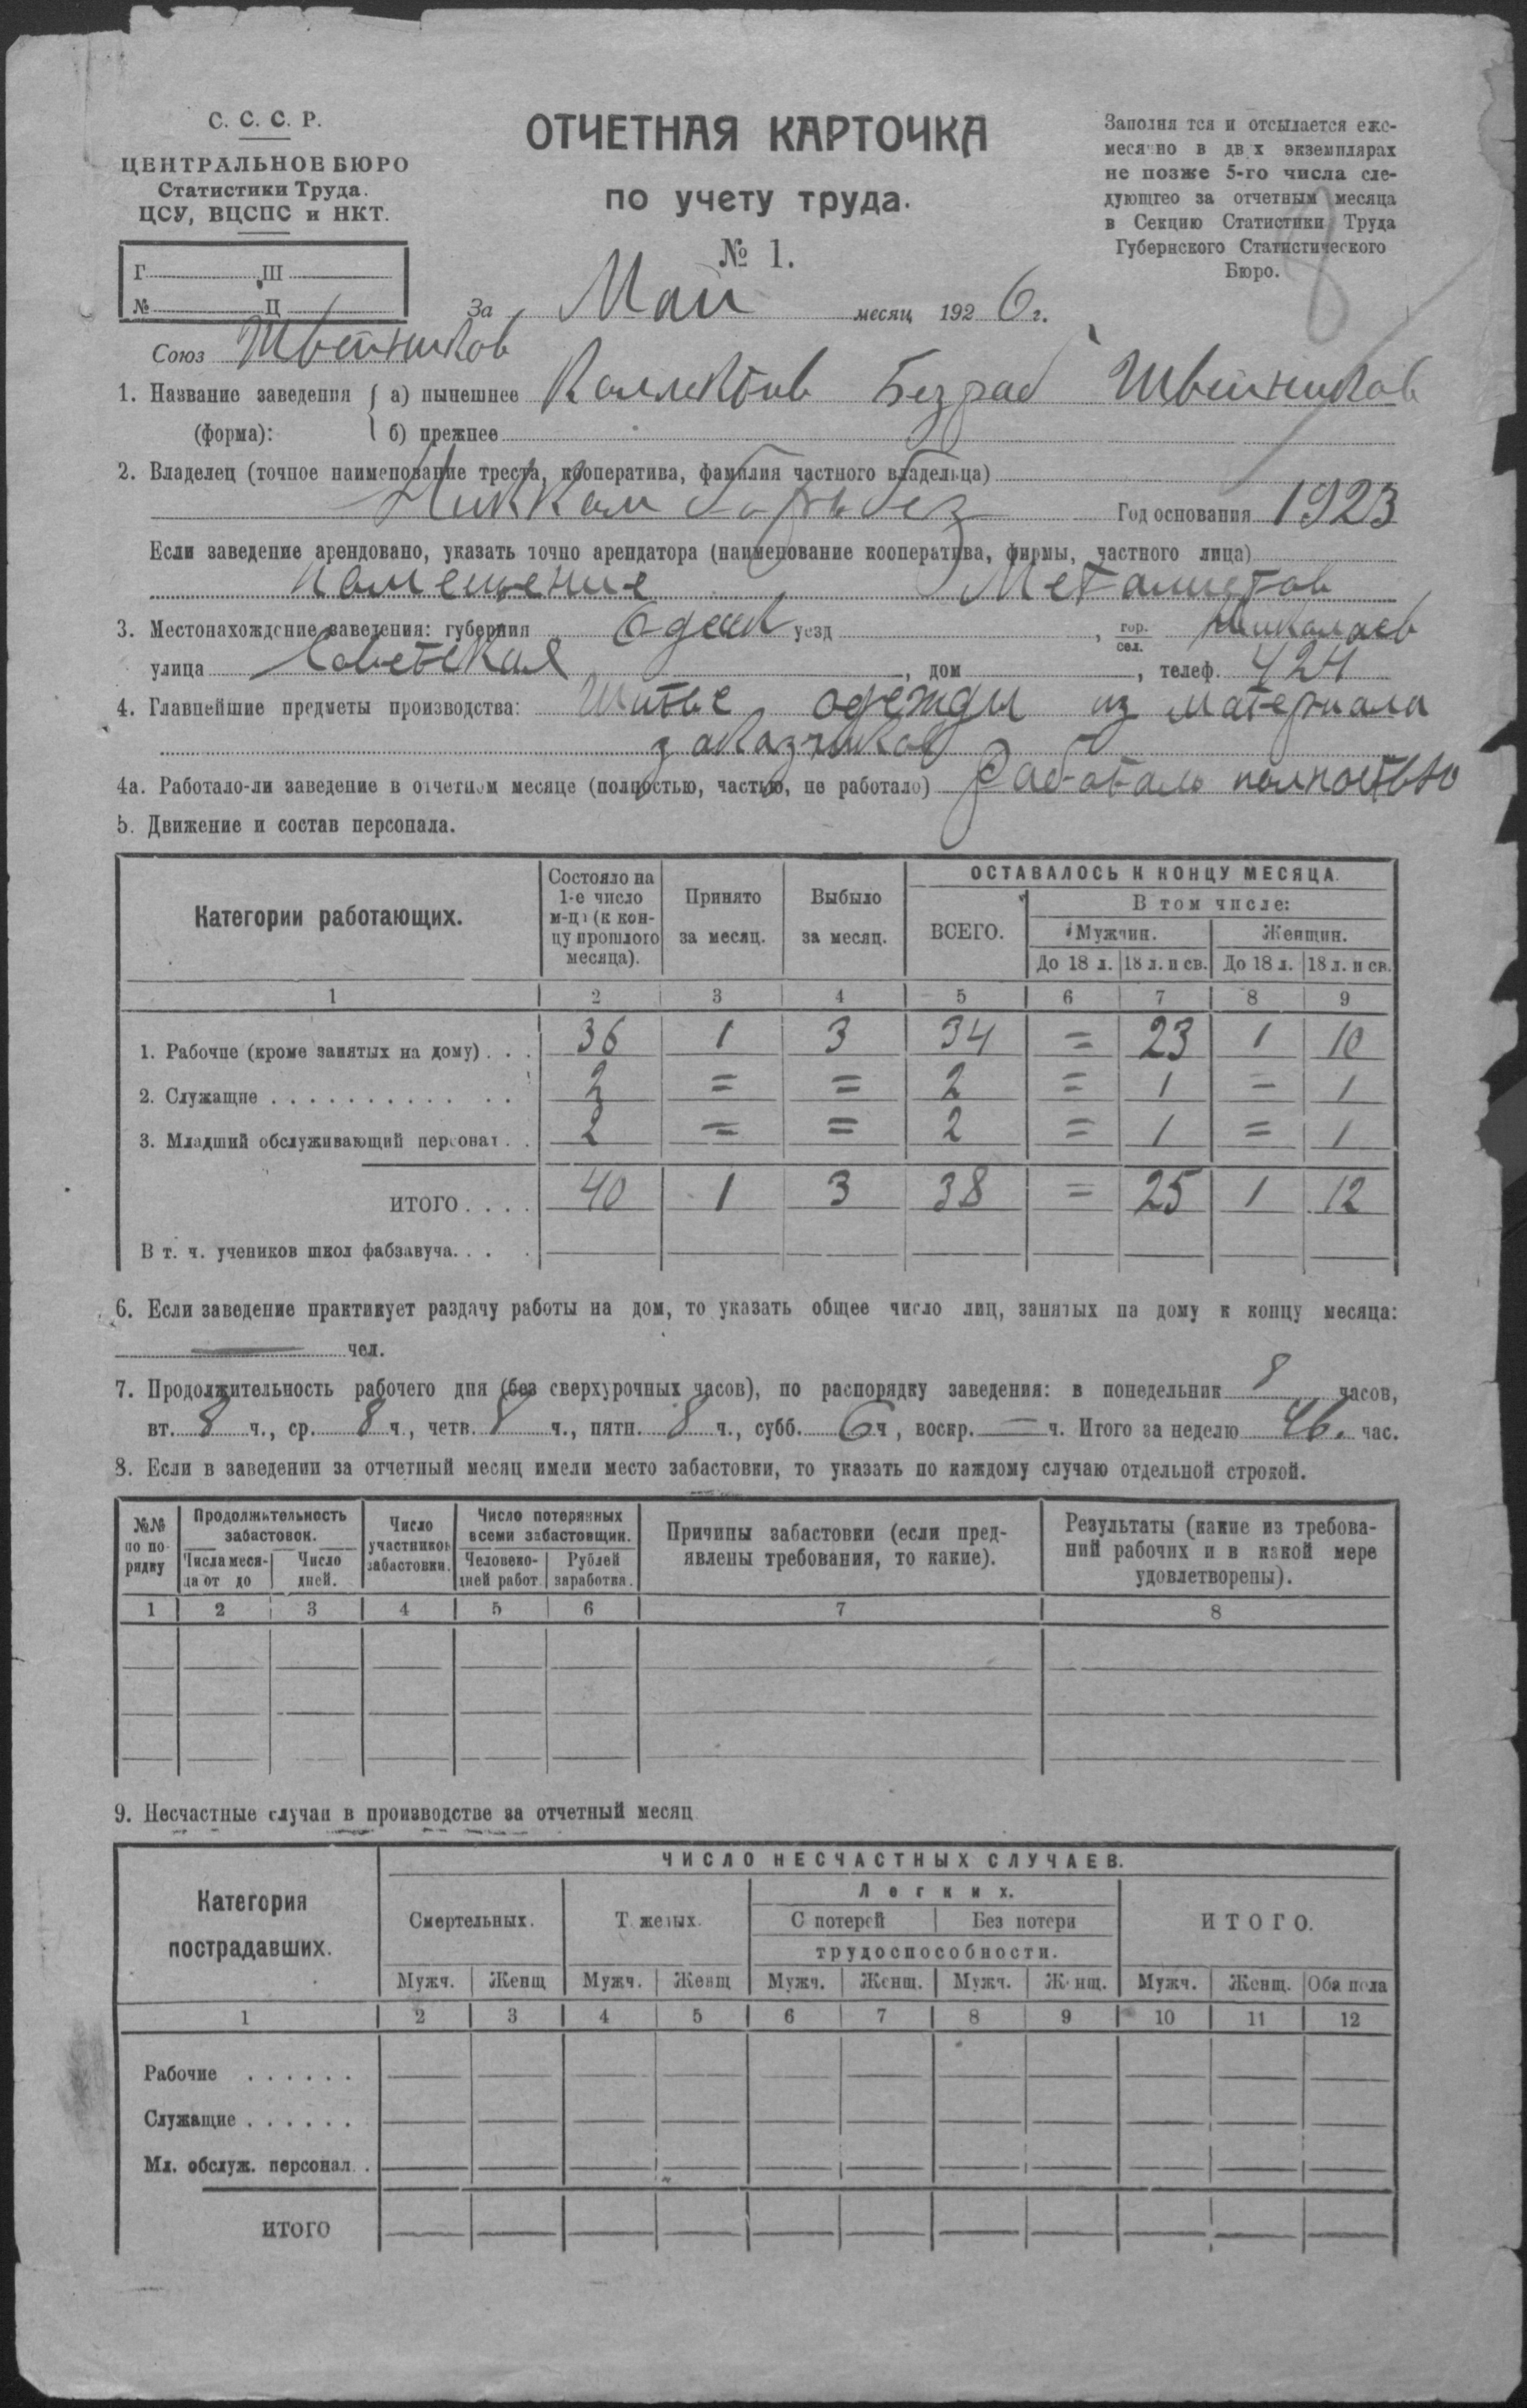 С. С. С. Р.
ЦЕНТРАЛЬНОЕ БЮРО
Статистики Труда.
ЦСУ, ВЦСПС и НКТ.
Г Ш
№ Ц
ОТЧЕТНАЯ КАРТОЧКА
по учету труда.
№ 1.
Заполня тся и отсылается еже-
меся но в дв х экземплярах
не позже 5-го числа сле-
дующгео за отчетным месяца
в Секцию Статистики Труда
Губернского Статистического
Бюро.
8
За Май месяц 1926 г.
Союз Швейников
1. Название заведения (форма): а) нынешнее Коллектив Безраб Швейников
б) прежнее
2. Владелец (точное наименование треста, кооператива, фамилия частного владельца)
Год основания 1923
Если заведение арендовано, указать точно арендатора (наименование кооператива, фирмы, частного лица)
помещение Металистов
3. Местонахождение заведения: губерния Одесск уезд , гор. сел. Николаев
улица Советская , дом , телеф. 424
4. Главнейшие предметы производства: Шитье одежды из материала
заказчиков
4а. Работало-ли заведение в отчетном месяце (полностью, частью, не работало) Работало полностью
5. Движение и состав персонала.
Категории работающих. Состояло на 1-е число м-ца (к кон-цу прошлого месяца). Принято за месяц. Выбыло за месяц. ОСТАВАЛОСЬ К КОНЦУ МЕСЯЦА.
ВСЕГО. В том числе:
Мужчин. Женщин.
До 18 л. 18 л. и св. До 18 л. 18 л. и св.
1 2 3 4 5 6 7 8 9
1. Рабочие (кроме занятых на дому) . . . 36 1 3 34 = 23 1 10
2. Служащие . . . . . . . . . . . . 2 = = 2 = 1 = 1
3. Младший обслуживающий персонал . . 2 = = 2 = 1 = 1
ИТОГО . . . . 40 1 3 38 = 25 1 12
В т. ч. учеников школ фабзавуча. . . .
6. Если заведение практикует раздачу работы на дом, то указать общее число лиц, занятых на дому к концу месяца:
— чел.
7. Продолжительность рабочего дня (без сверхурочных часов), по распорядку заведения: в понедельник 8 часов,
вт. 8 ч., ср. 8 ч., четв. 8 ч., пятн. 8 ч., субб. 6 ч., воскр. — ч. Итого за неделю 46. час.
8. Если в заведении за отчетный месяц имели место забастовки, то указать по каждому случаю отдельной строкой.
№№ по по-рядку Продолжительность забастовок. Число участников забастовки. Число потерянных всеми забастовщик. Причины забастовки (если пред-явлены требования, то какие). Результаты (какие из требова-ний рабочих и в какой мере удовлетворены).
Числа меся-ца от до Число дней. Человеко-дней работ. Рублей заработка.
1 2 3 4 5 6 7 8
9. Несчастные случаи в производстве за отчетный месяц
Категория пострадавших. ЧИСЛО НЕСЧАСТНЫХ СЛУЧАЕВ.
Смертельных. Т желых. Легких. ИТОГО.
С потерей Без потери
трудоспособности.
Мужч. Женщ Мужч. Женщ Мужч. Женщ. Мужч. Ж нщ. Мужч. Женщ. Оба пола
1 2 3 4 5 6 7 8 9 10 11 12
Рабочие . . . . . .
Служащие . . . . . .
Мл. обслуж. персонал . .
ИТОГО